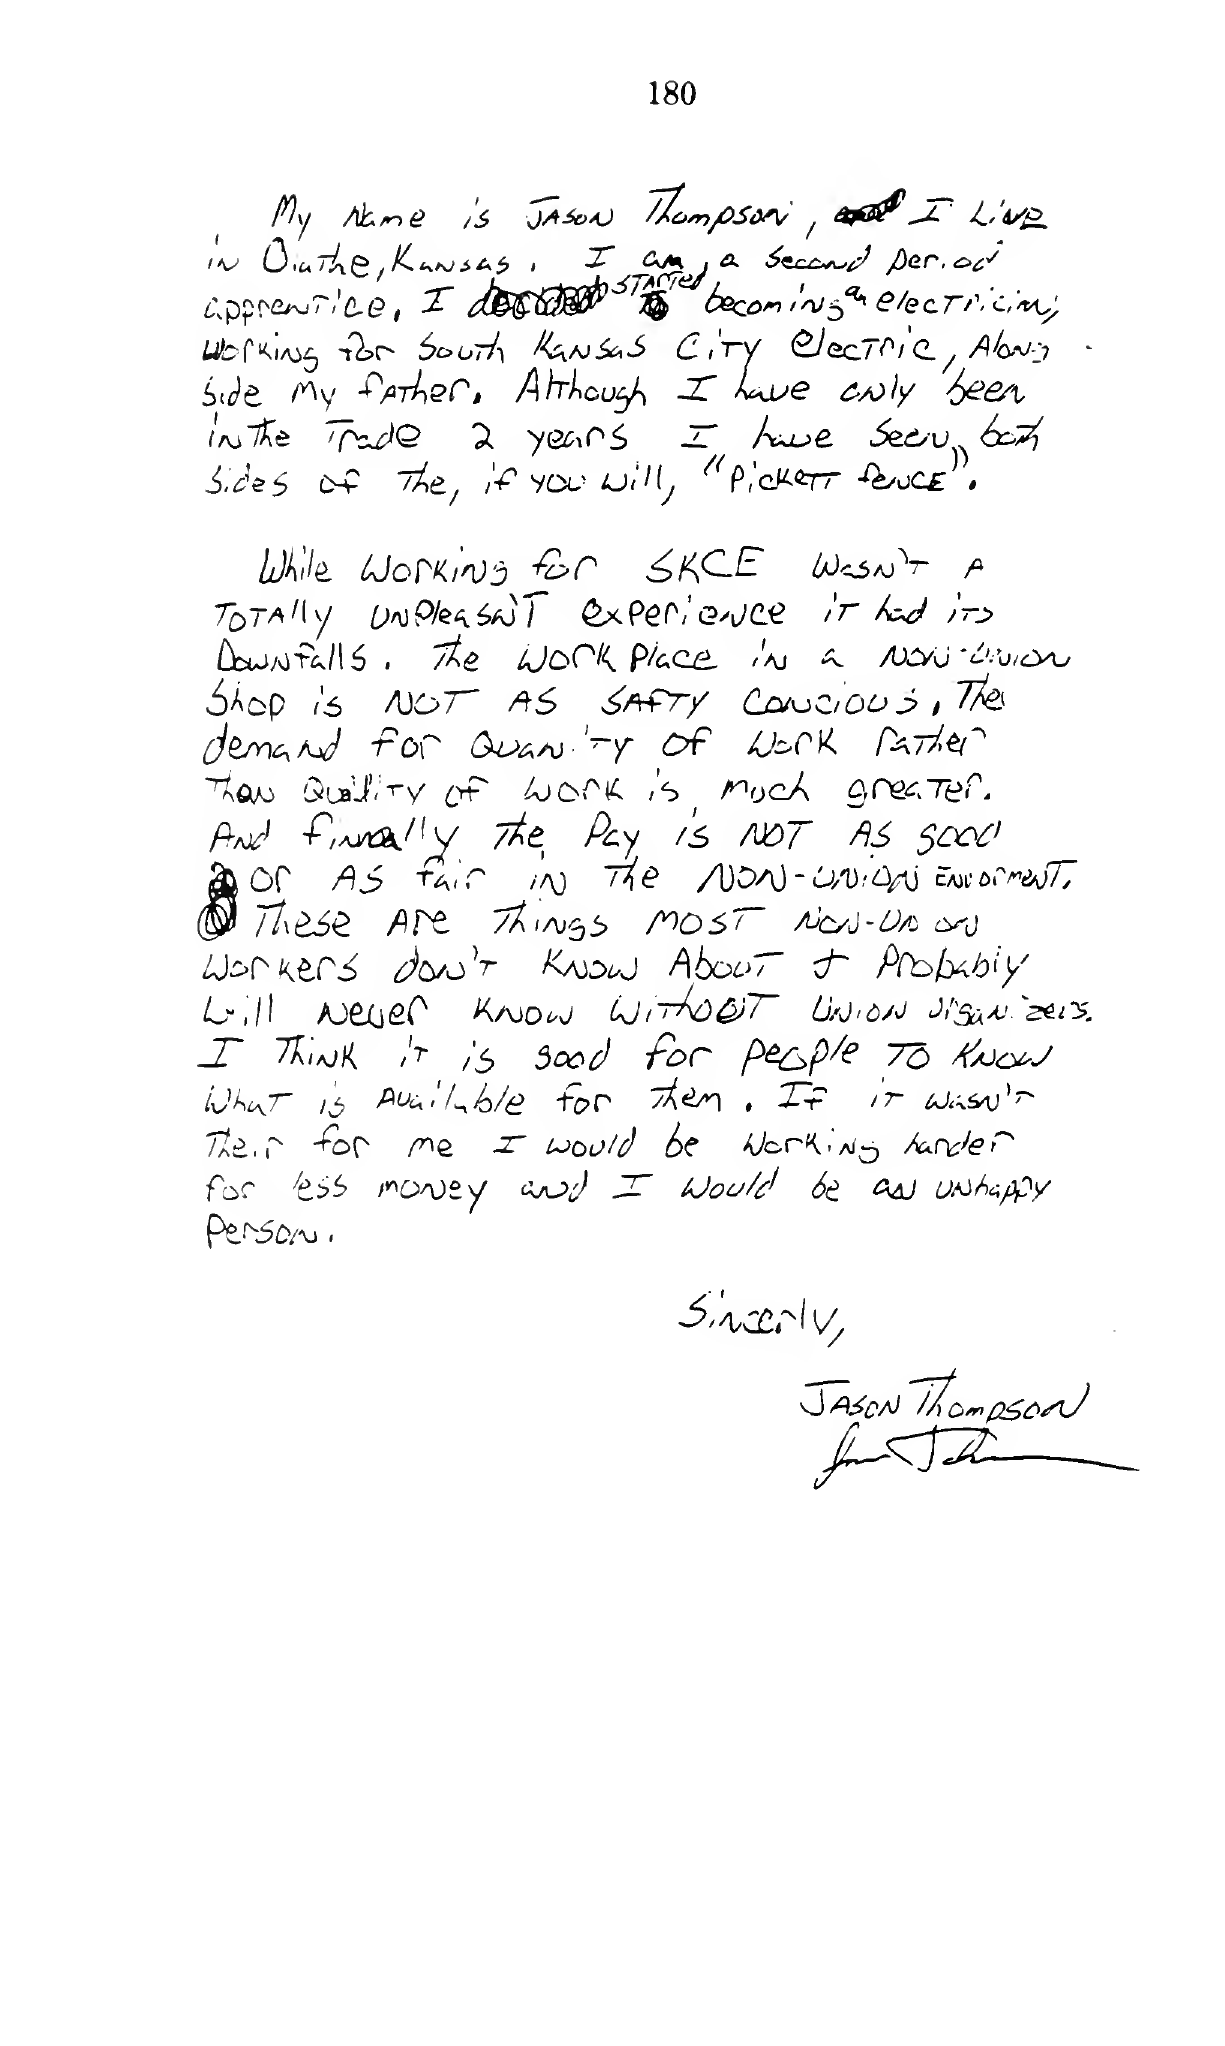 180
My Name is Jason Thompson, I Live
in Olathe, Kansas. I am a second period
apprentice. I started becoming an electricin,
working for South Kansas City Electric, Along
side My father. Although I have only been
in the Trade 2 years I have seen both
sides of the, if you will, "Pickett fence".
While Working for SKCE Wasn't A
Totally unpleasant experience it had its
Downfalls. The Work Place in a Non-Union
Shop is NOT AS SAFTY Concious. The
demand for Quantity of Work rather
Than Quality of Work is much greater.
And finally the Pay is NOT AS good
or AS fair in the Non-Union
These Are Things MOST Non-Union
Workers don't Know About & Probably
Will Never Know Without Union organizers.
I Think it is good for people To Know
What is Available for Them. If it wasn't
Their for me I would be Working harder
for less money and I would be an unhappy
Person.
Sincerly,
Jason Thompson